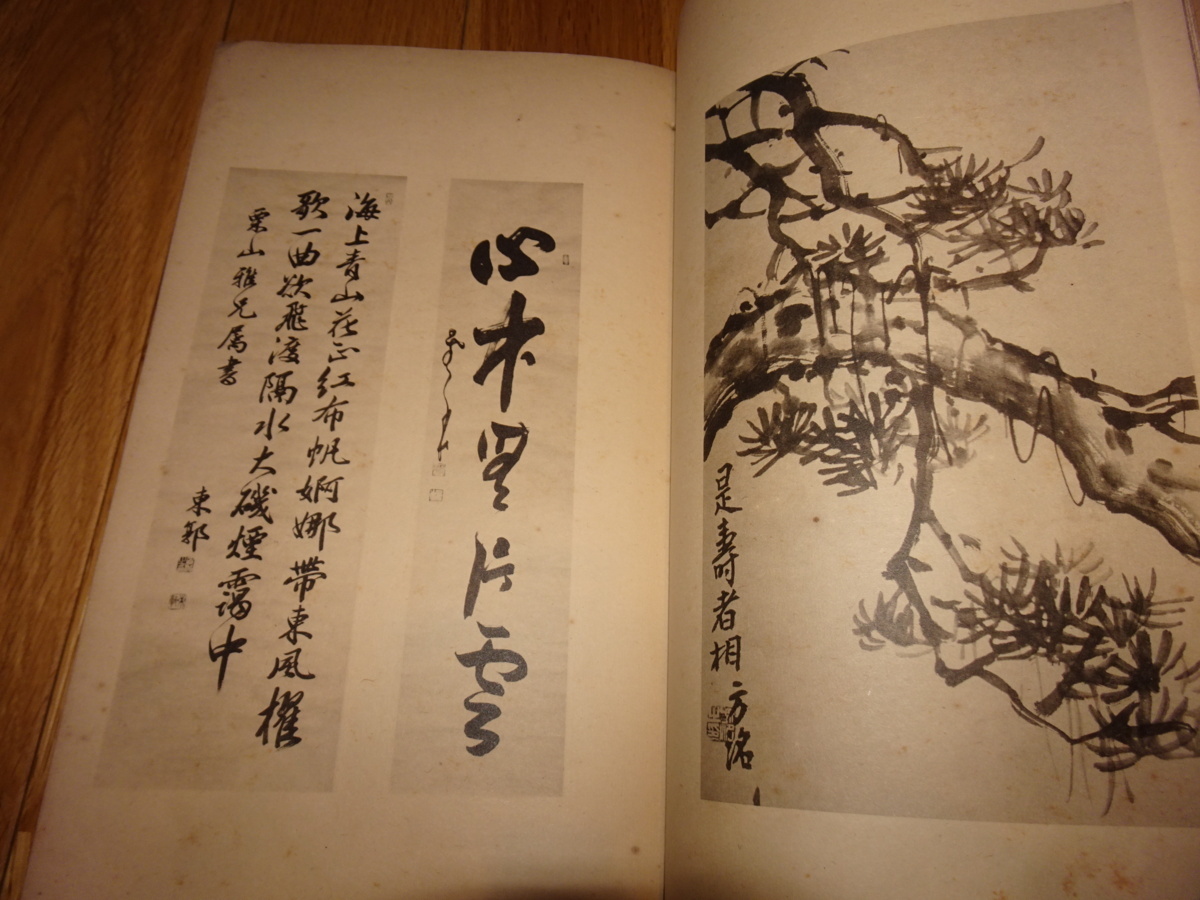 是壽者相
方洺
心本無片雲
海上青山花正紅布帆婀娜帶東風櫂
歌一曲欲飛渡隔水大磯煙靄中
栗山雅兄属書
東郭